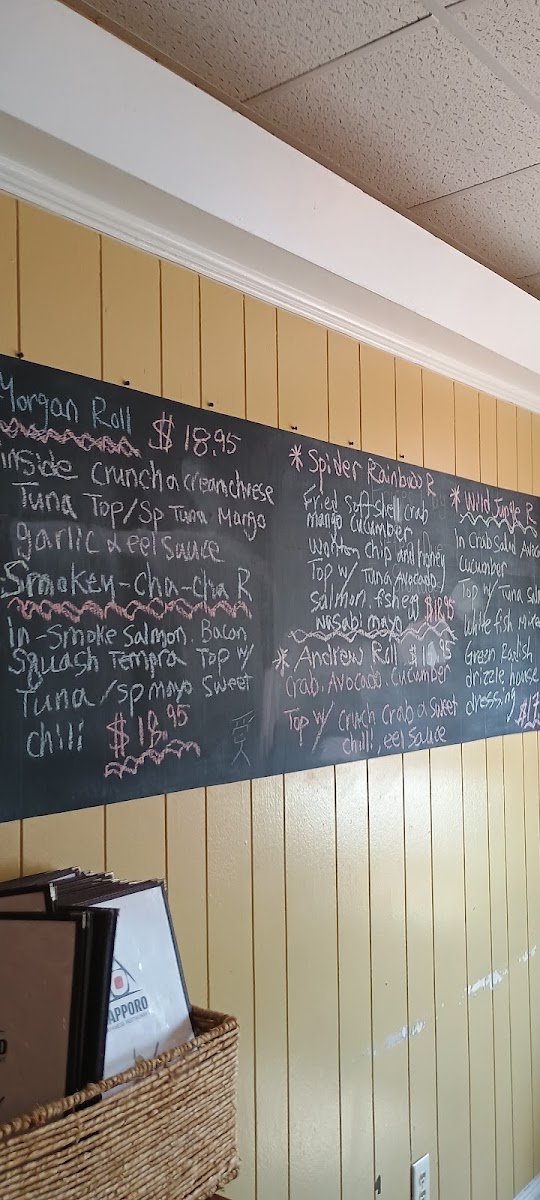 Morgan Roll $18.95
inside crunch a creamcheese
Tuna Top/Sp Tuna Mango
garlic & eel sauce
Smokey-cha-cha R
In-smoke salmon. Bacon
Squash Tempra Top w/
Tuna/sp mayo sweet
chili $18.95
* Spider Rainbow R
Fried soft shell crab
mango cucumber
wonton chip and honey
Top w/ Tuna, Avocado,
salmon, fish egg
wasabi mayo
* Andrew Roll
Crab. Avocado. Cucumber
Top w/ crunch crab a sweet
chilli, eel sauce
愛
* Wild Jungle R
In crab salad Avoca
cucumber
Top w/ Tuna salm
white fish
Green
drizzle house
dressing
APPORO